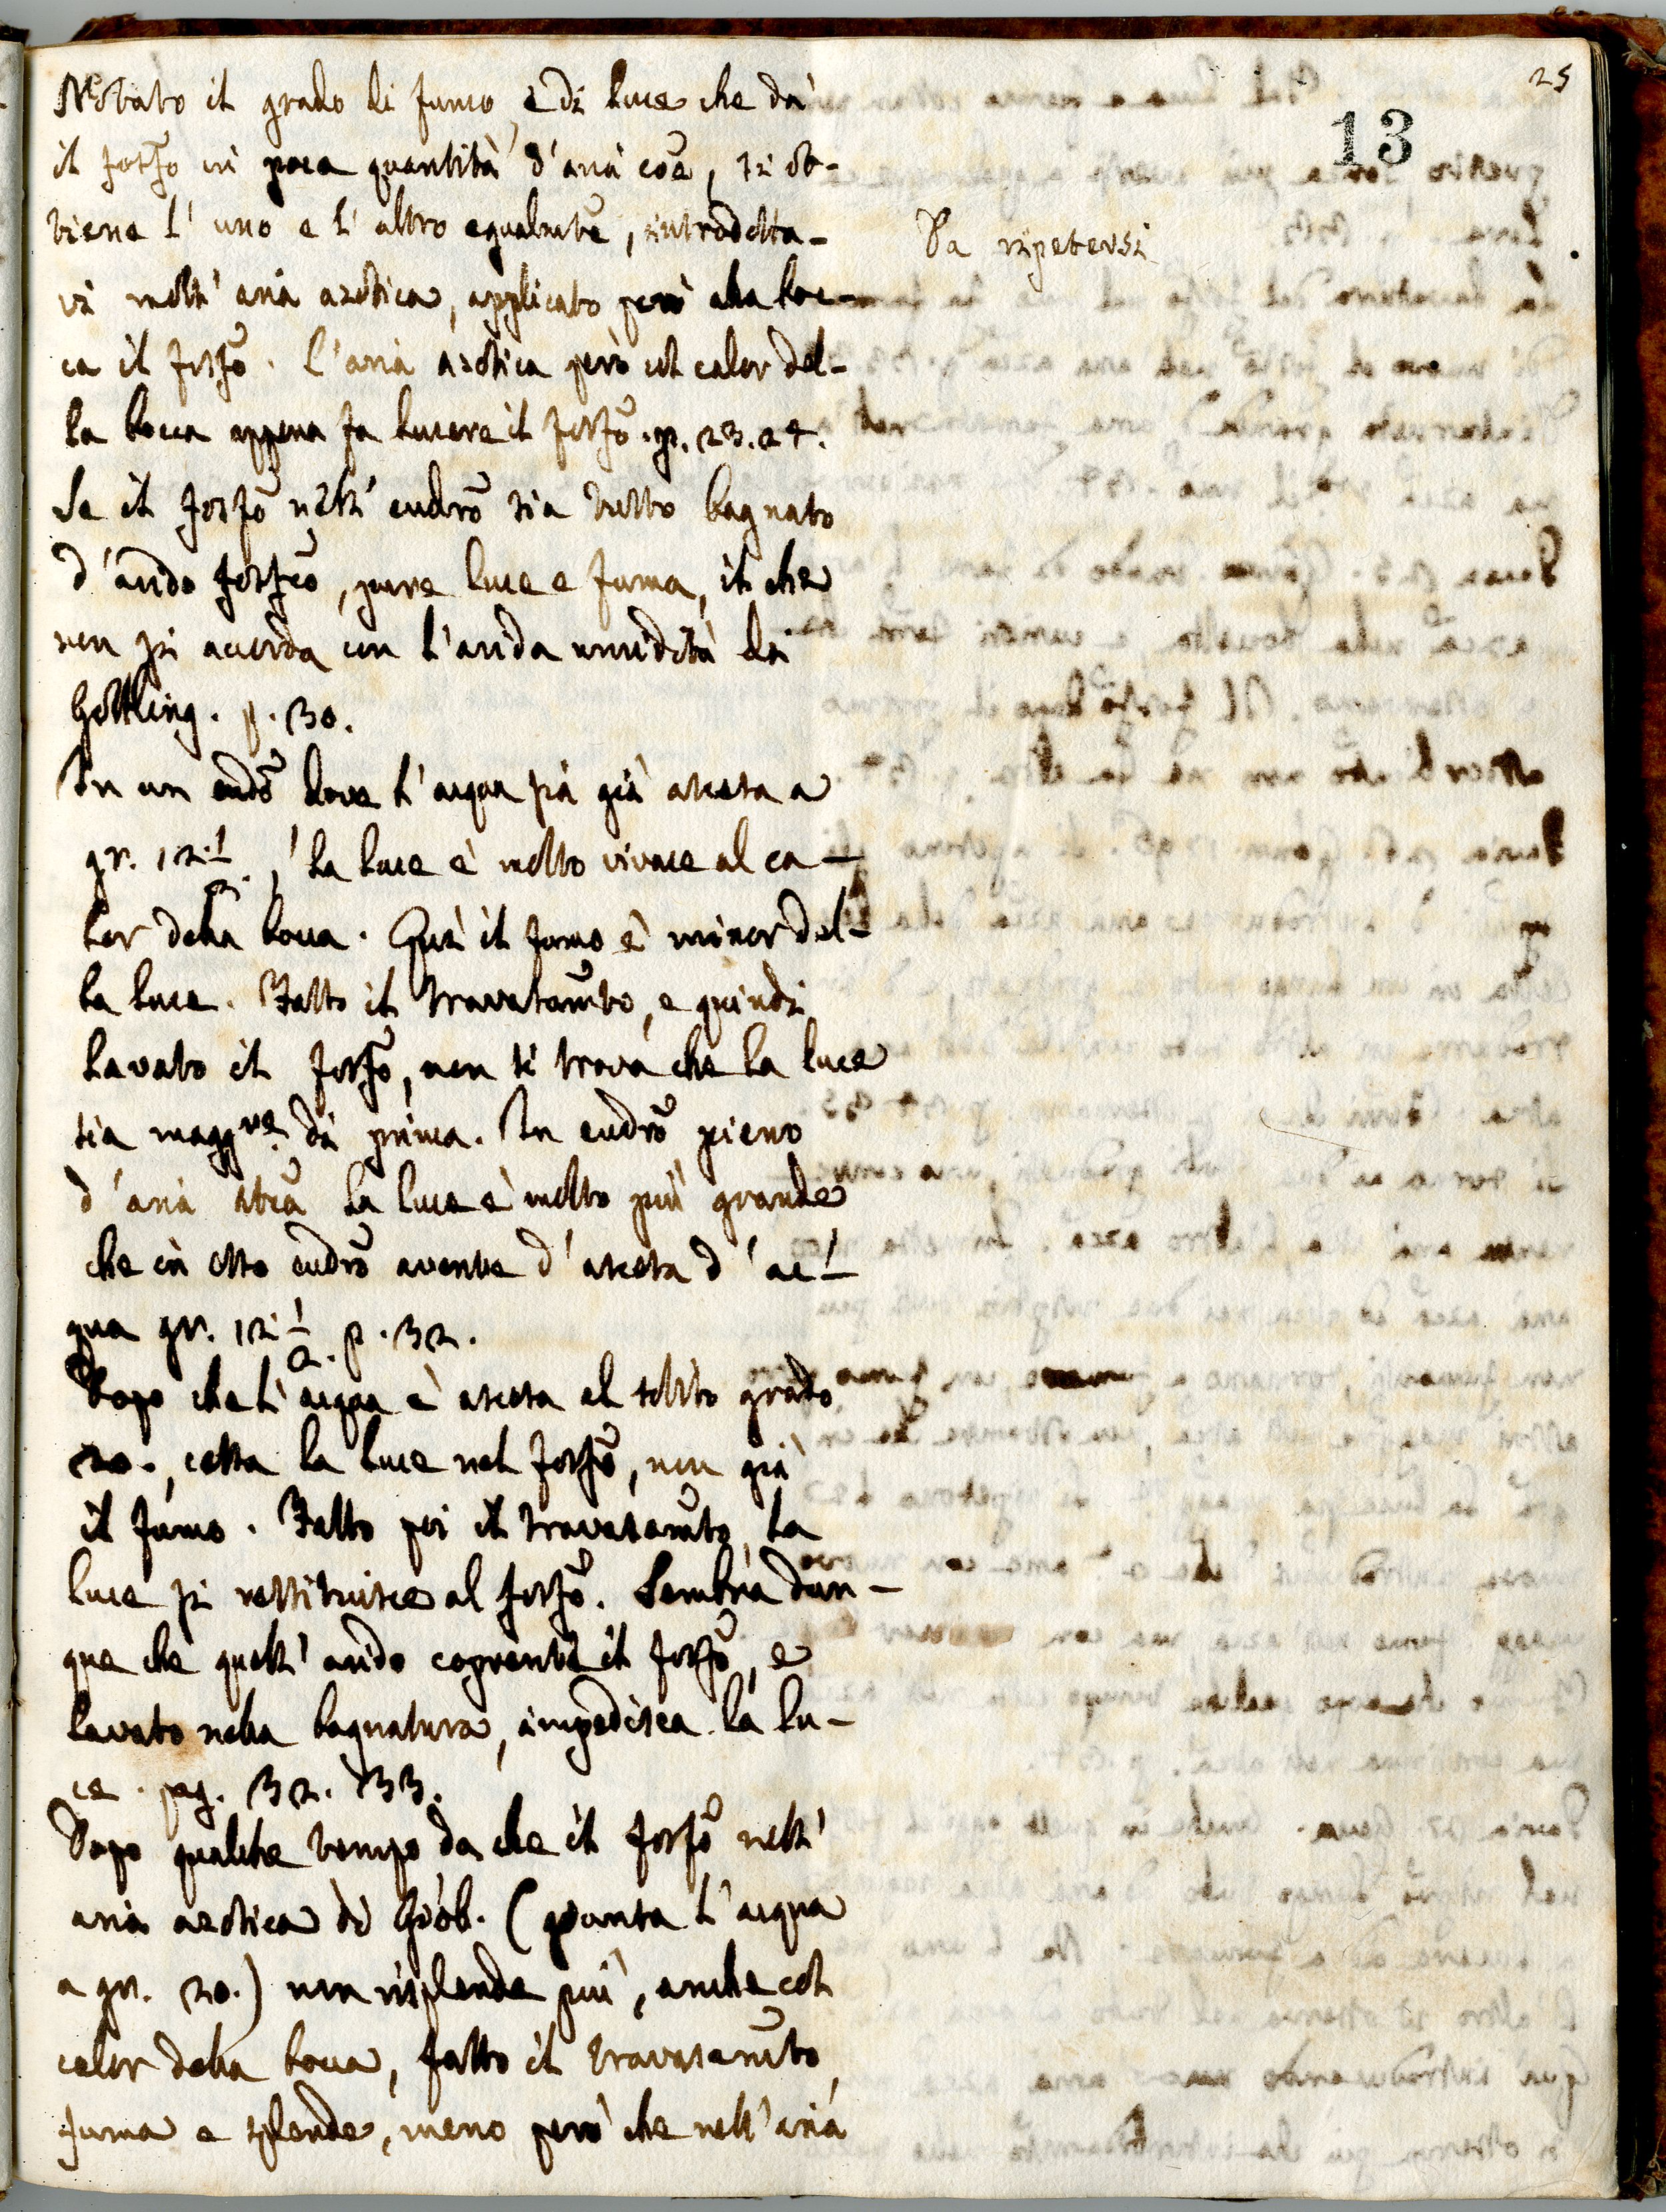 25
13
Notato il grado di fumo, e di luce che dà
il fosfo in poca quantità d'aria coe, si ot-
tiene l'uno e l'altro egualmte, introdotta-
vi molt'aria azotica, applicato però alla boc-
ca il fosfo. L'aria azotica però col calor del-
la bocca appena fa lucere il fosfo. p. 23. 24.
Se il fosfo nell'eudro sia tutto bagnato
d'acido fosfco, pure luce e fuma, il che
non si accorda con l'acida umidità di
Gottling. p. 30.
In un eudo dove l'acqua sia già ascesa a
gr. 12. 1/2., la luce è molto vivace al ca-
lor della bocca. Qui il fumo è minor del-
la luce. Fatto il travasamto, e quindi
lavato il fosfo, non si trova che la luce
sia maggre di prima. In eudro pieno
d'aria atca la luce è molto più grande
che in otto eudro avente d'ascesa d'ac-
qua gr. 12 1/2. p. 32.
Dopo che l'acqua è ascesa al solito grado
20., cessa la luce nel fosfo, non già
il fumo. Fatto poi il travasamto, la
luce si restituisce al fosfo. Sembra dun-
que che quell'acido coprente il fosfo, e
lavato nella bagnatura, impedisca la lu-
ce. pag. 32. 33.
Dopo qualche tempo da che il fosfo nell'
aria azotica di Giob. (giunta l'acqua
a gr. 20.) non risplende più, anche col
calor della bocca, fatto il travasamto,
fuma e splende, meno però che nell'aria
Da ripetersi